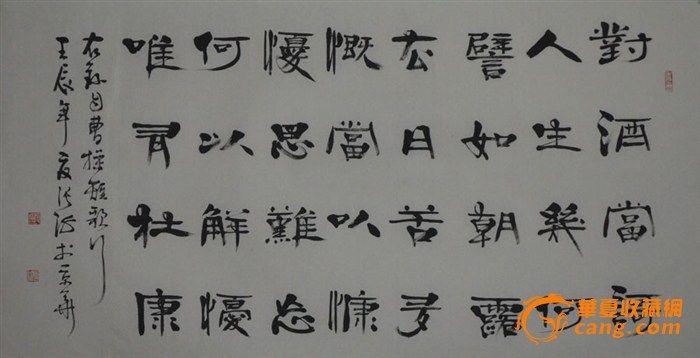 對酒當謌
人生幾何
譬如朝露
去日苦多
慨當以慷
懮思難忘
何以解懮
唯有杜康
右錄自曹操短歌行
壬辰年夏於京華
華夏收藏網
cang.com